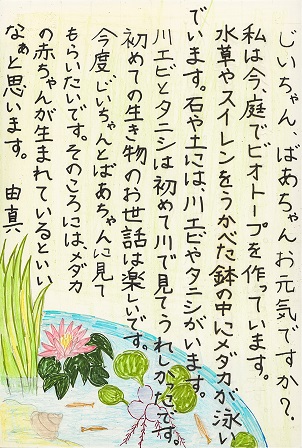 じいちゃん ばあちゃんお元気ですか？
私は今、庭でビオトープを作っています。
水草やスイレンをうかべた鉢の中にメダカが泳い
でいます。石や土には、川エビやタニシがいます。
川エビとタニシは初めて川で見てうれしかったです。
初めての生き物のお世話は楽しいです。
今度じいちゃんとばあちゃんに見て
もらいたいです。そのころには、メダカ
の赤ちゃんが生まれているといい
なぁと思います。 由真